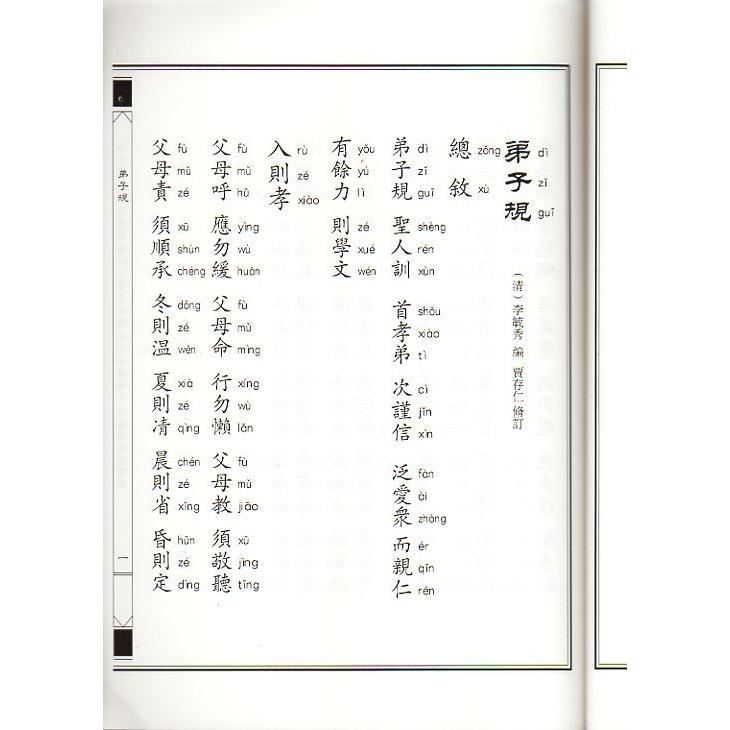 弟子規 dì zǐ guī
(清)李毓秀 編 賈存仁 脩訂
總敘 zǒng xù
弟子規 聖人訓 首孝弟 次謹信 泛愛衆 而親仁
dì zǐ guī shèng rén xùn shǒu xiào tì cì jǐn xìn fàn ài zhòng ér qīn rén
有餘力 則學文
yǒu yú lì zé xué wén
入則孝 rù zé xiào
父母呼 應勿緩 父母命 行勿懶 父母教 須敬聽
fù mǔ hū yìng wù huǎn fù mǔ mìng xíng wù lǎn fù mǔ jiāo xū jìng tīng
父母責 須順承 冬則温 夏則凊 晨則省 昏則定
fù mǔ zé xū shùn chéng dōng zé wēn xià zé qìng chén zé xǐng hūn zé dìng
弟子規
一